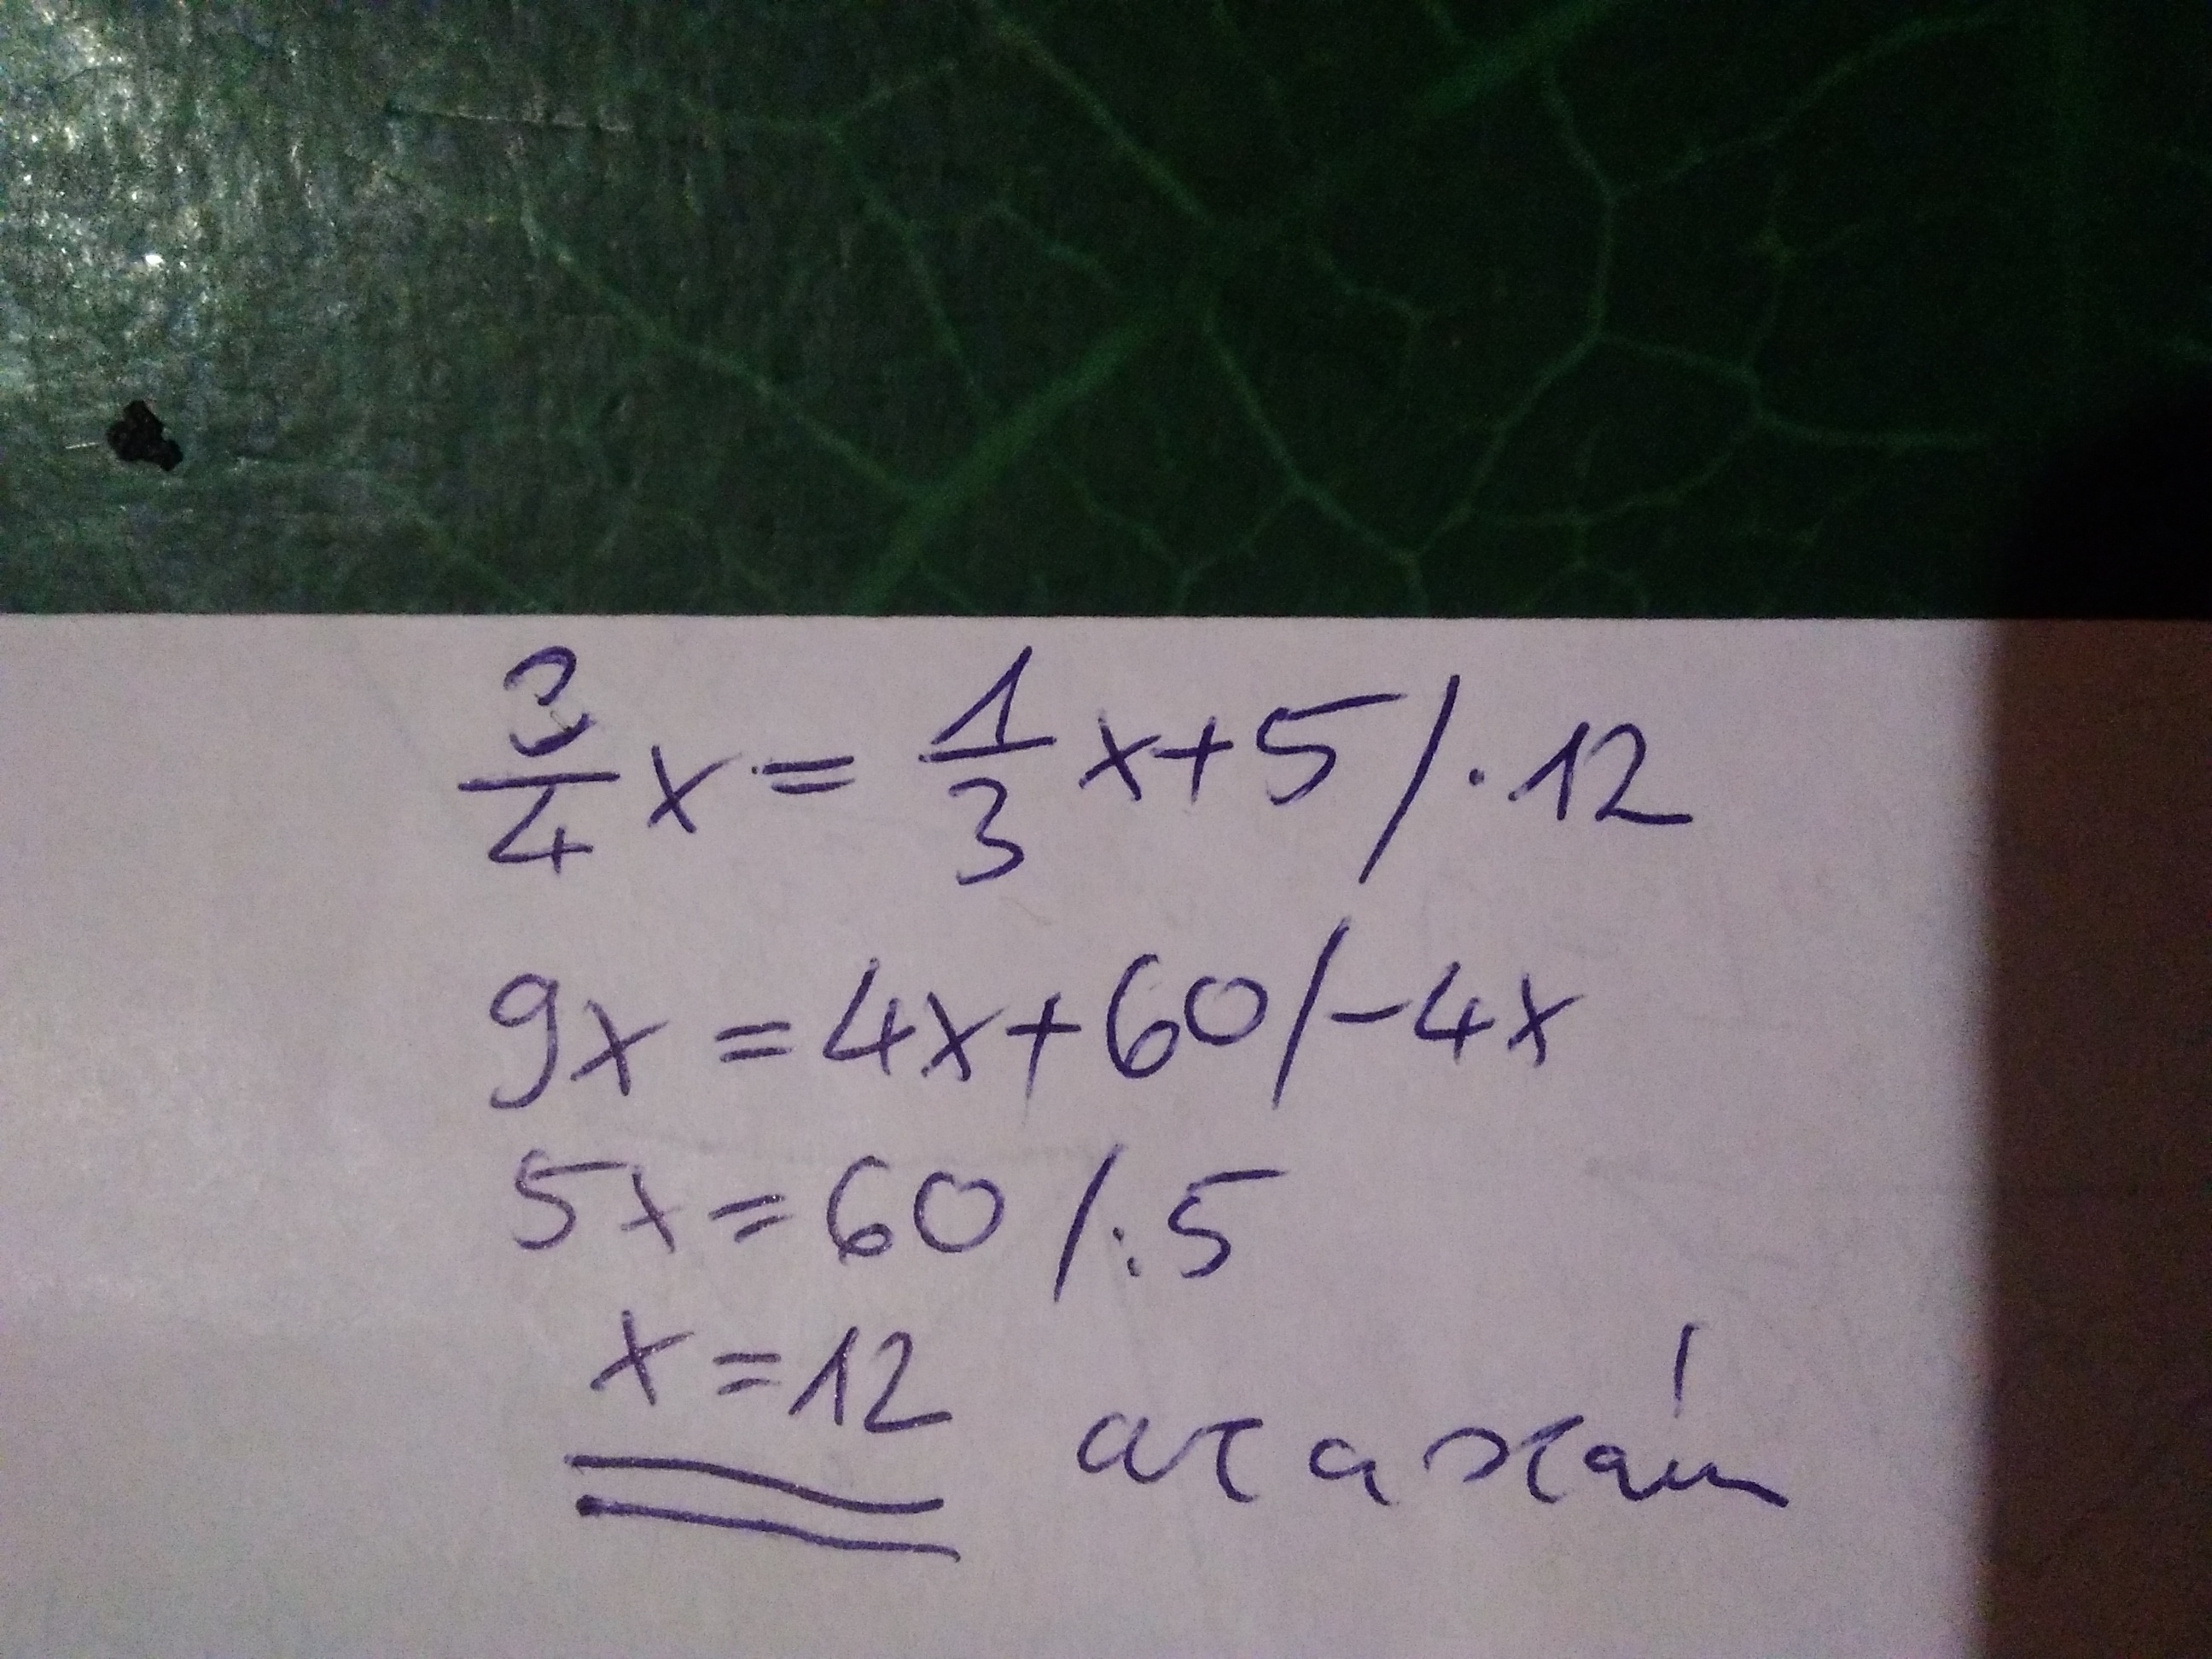 3/4 x = 1/3 x + 5 / · 12
9x = 4x + 60 / - 4x
5x = 60 / : 5
x = 12 az a szám